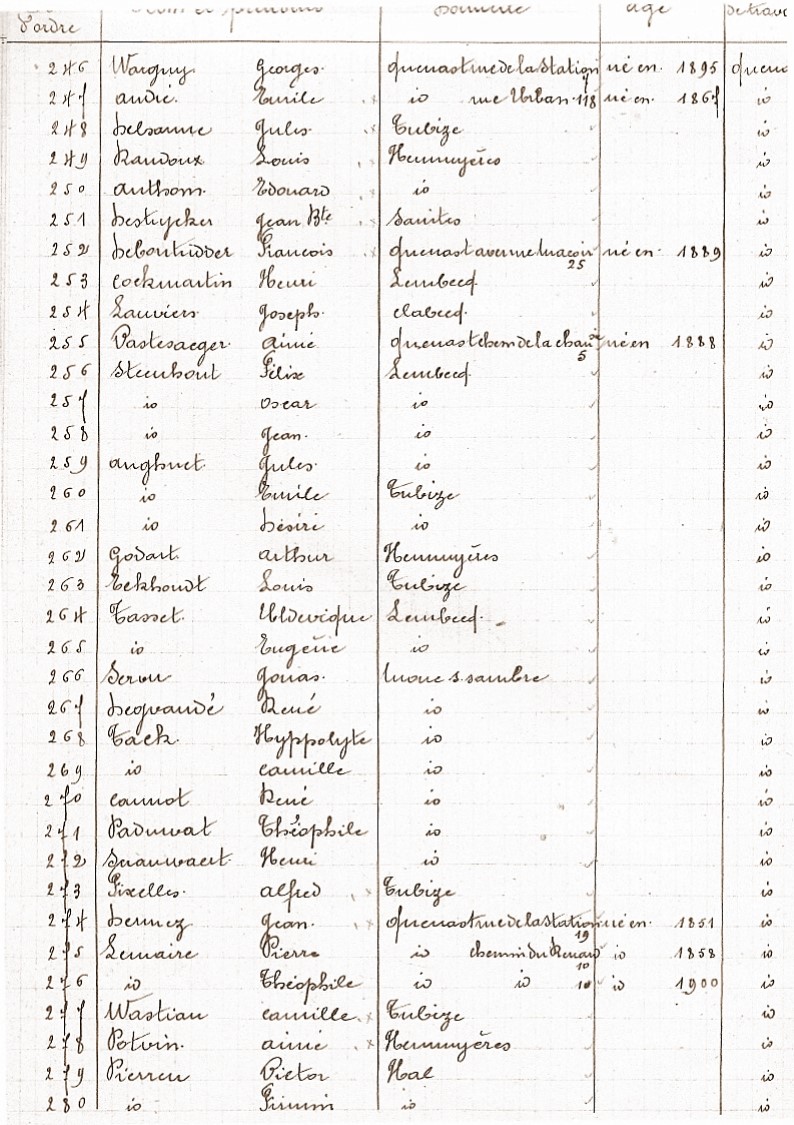 d'ordre âge de trav
246 Warguy Georges quenast rue de la Station né en 1895 quena
247 andré Emile io rue Urban 118 né en 1867 io
248 Delsanne Jules Tubize io
249 Randoux Louis Hennuyères io
250 anthom Edouard io io
251 Destrycker Jean Bte Saintes io
252 Deboutridder Francois quenast avenue 25 né en 1889 io
253 cockmartin Henri Lembecq io
254 Lauviers Joseph clabecq io
255 Pastesaeger aimé quenast chem de la 5 né en 1888 io
256 Steenhout Félix Lembecq io
257 io oscar io io
258 io Jean io io
259 anghuet Jules io io
260 io Emile Tubize io
261 io Désiré io io
262 Godart arthur Hennuyères io
263 Eekhoudt Louis Tubize io
264 Tasset Lembecq io
265 io Eugénie io io
266 Servu Jonas s sambre io
267 Degrandé René io io
268 Tack Hyppolyte io io
269 io camille io io
270 cannot René io io
271 Paduwat Théophile io io
272 Henri io io
273 Fixelles alfred Tubize io
274 Dermez Jean quenast rue de la Station 19 né en 1851 io
275 Lemaire Pierre io chemin du Renard 10 io 1858 io
276 io Théophile io io 10 io 1900 io
277 Wastiau camille Tubize io
278 Potvin aimé Hennuyères io
279 Pierreu Victor Hal io
280 io Firmin io io